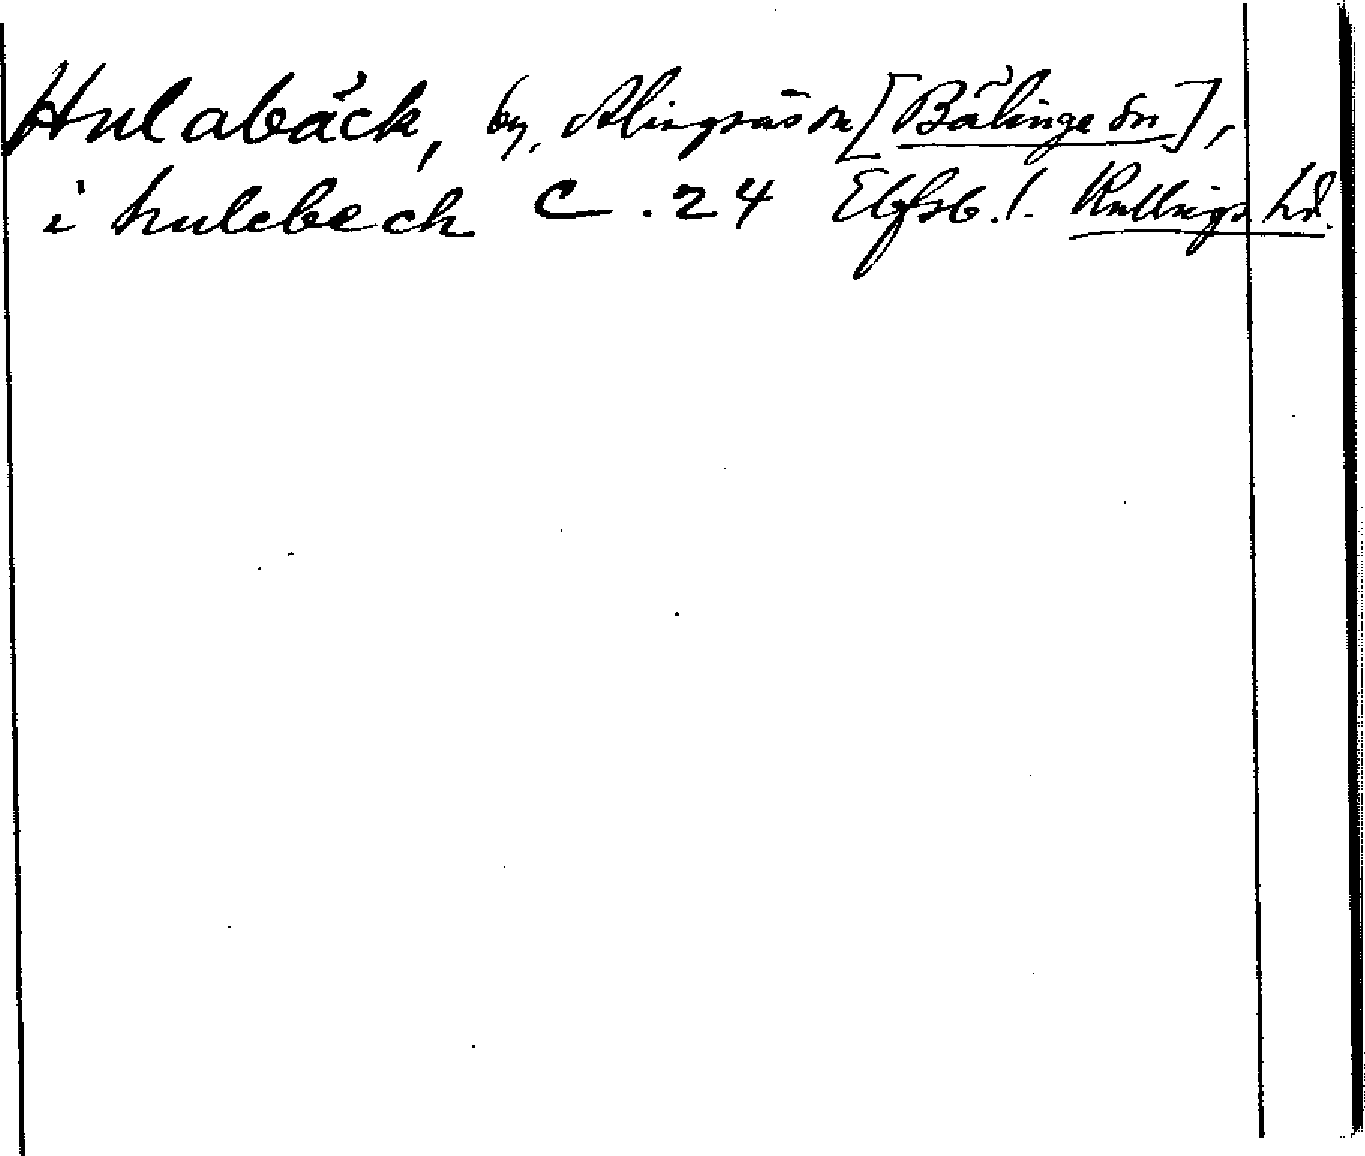 Hulabäck, by, Alingsås sn [Bälinge sn],
i hulebech C. 24 Elfsb. l. Kullings hd.